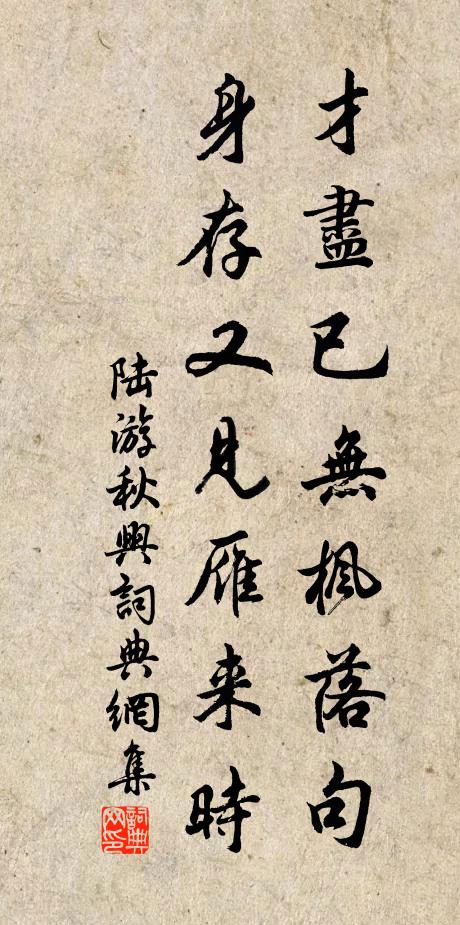 才盡已無楓落句
身存又見雁来時
陆游秋興詞典網集
詞典网印